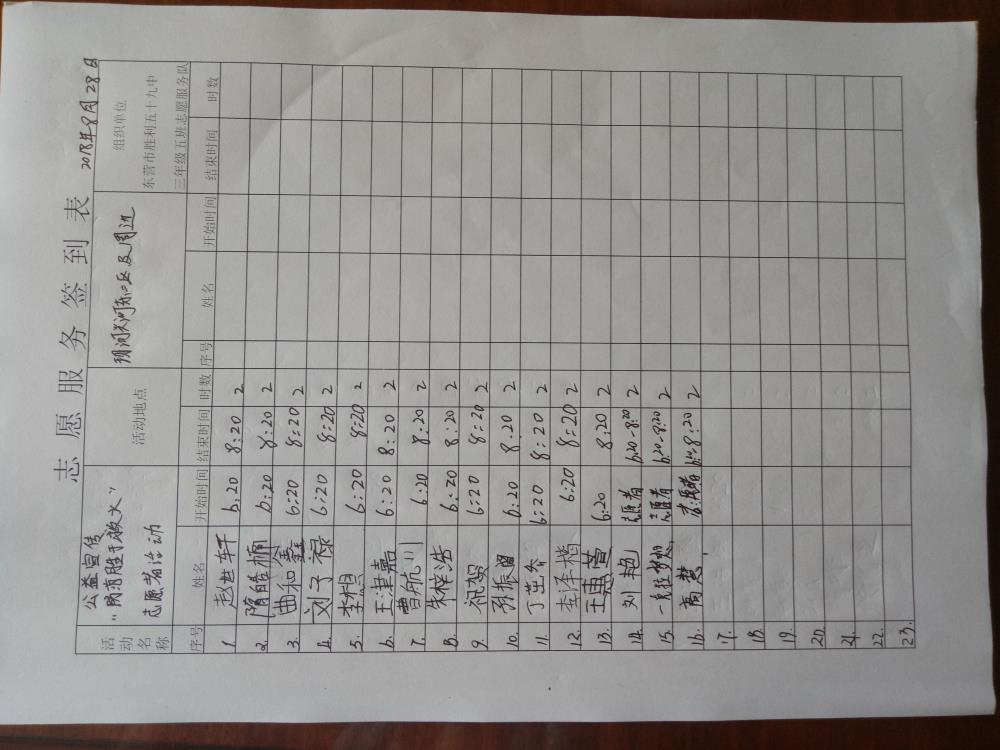 志愿服务签到表
2018年8月28日
活动名称
公益宣传
"防消胜于救火"
志愿者活动
活动地点
组织单位
东营市胜利五十九中
三年级五班志愿服务队
序号 姓名 开始时间 结束时间 时数 序号 姓名 开始时间 结束时间 时数
1. 赵世轩 6:20 8:20 2
2. 隋皓楠 6:20 8:20 2
3. 曲和鑫 6:20 8:20 2
4. 刘子禄 6:20 8:20 2
5. 李想 6:20 8:20 2
6. 王津嘉 6:20 8:20 2
7. 曹航川 6:20 8:20 2
8. 朱梓浩 6:20 8:20 2
9. 祝贺 6:20 8:20 2
10. 6:20 8:20 2
11. 6:20 8:20 2
12. 李泽楷 6:20 8:20 2
13. 王惠萱 6:20 8:20 2
14. 刘艳 志愿者 6:20-8:20 2
15. 志愿者 6:20-8:20 2
16. 商慧 志愿者 8:20 2
17.
18.
19.
20.
21.
22.
23.